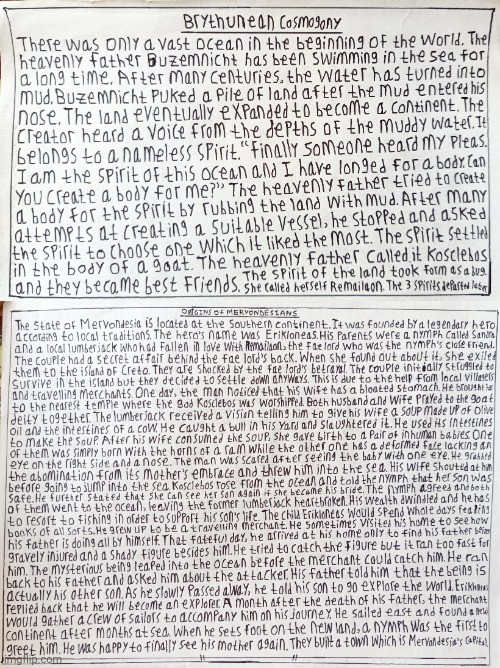 Brythunean Cosmogony
There was only a vast ocean in the beginning of the world. The
heavenly father Buzemnicht has been swimming in the sea for
a long time. After many centuries, the water has turned into
mud. Buzemnicht puked a pile of land after the mud entered his
nose. The land eventually expanded to become a continent. The
creator heard a voice from the depths of the muddy water. It
belongs to a nameless spirit. "Finally someone heard my pleas.
I am the spirit of this ocean and I have longed for a body. Can
you create a body for me?" The heavenly father tried to create
a body for the spirit by rubbing the land with mud. After many
attempts at creating a suitable vessel, he stopped and asked
the spirit to choose one which it liked the most. The spirit settled
in the body of a goat. The heavenly father called it Kosclebos
and they became best friends. The spirit of the land took form as a bug.
She called herself Remailaon. The 3 spirits departed later
Origins of Mervondesians
The state of Mervondesia is located at the southern continent. It was founded by a legendary hero
according to local traditions. The hero's name was Erikloneas. His parents were a nymph called Sandra
and a local lumberjack who had fallen in love with Remailaon, the fae lord who was the nymph's close friend.
The couple had a secret affair behind the fae lord's back. When she found out about it, she exiled
them to the island of Creto. They are shocked by the fae lord's betrayal. The couple initially struggled to
survive in the island but they decided to settle down anyways. This is due to the help from local villagers
and travelling merchants. One day, the man noticed that his wife has a bloated stomach. He brought her
to the nearest temple where the god Kosclebos was worshipped. Both husband and wife prayed to the goat
deity together. The lumberjack received a vision telling him to give his wife a soup made up of olive
oil and the intestines of a cow. He caught a bull in his yard and slaughtered it. He used its intestines
to make the soup. After his wife consumed the soup, she gave birth to a pair of inhuman babies. One
of them was simply born with the horns of a ram while the other one has a deformed face lacking an
eye on the right side and a nose. The man was scared after seeing the baby with one eye. He grabbed
the abomination from its mother's embrace and threw him into the sea. His wife shouted at him
before going to jump into the sea. Kosclebos rose from the ocean and told the nymph that her son was
safe. He further stated that she can see her son again if she became his bride. The nymph agreed and both
of them went to the ocean, leaving the former lumberjack heartbroken. His wealth dwindled and he has
to resort to fishing in order to support his son's life. The child Erikloneas would spend whole days reading
books of all sorts. He grew up to be a travelling merchant. He sometimes visited his home to see how
his father is doing all by himself. That fateful day, he arrived at his home only to find his father being
gravely injured and a shady figure besides him. He tried to catch the figure but it ran too fast for
him. The mysterious being leaped into the ocean before the merchant could catch him. He ran
back to his father and asked him about the attacker. His father told him that the being is
actually his other son. As he slowly passed away, he told his son to go explore the world. Erikloneas
replied back that he will become an explorer. A month after the death of his father, the merchant
would gather a crew of sailors to accompany him on his journey. He sailed east and found a new
continent after months at sea. When he sets foot on the new land, a nymph was the first to
greet him. He was happy to finally see his mother again. They built a town which is Mervondesia's capital.
imgflip.com